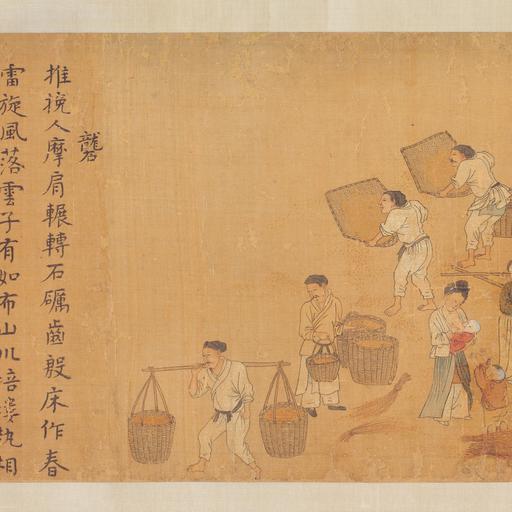 礱
推挽人摩肩輾轉石礪齒殷床作春
雷旋風落雲子有如布山川培塿相